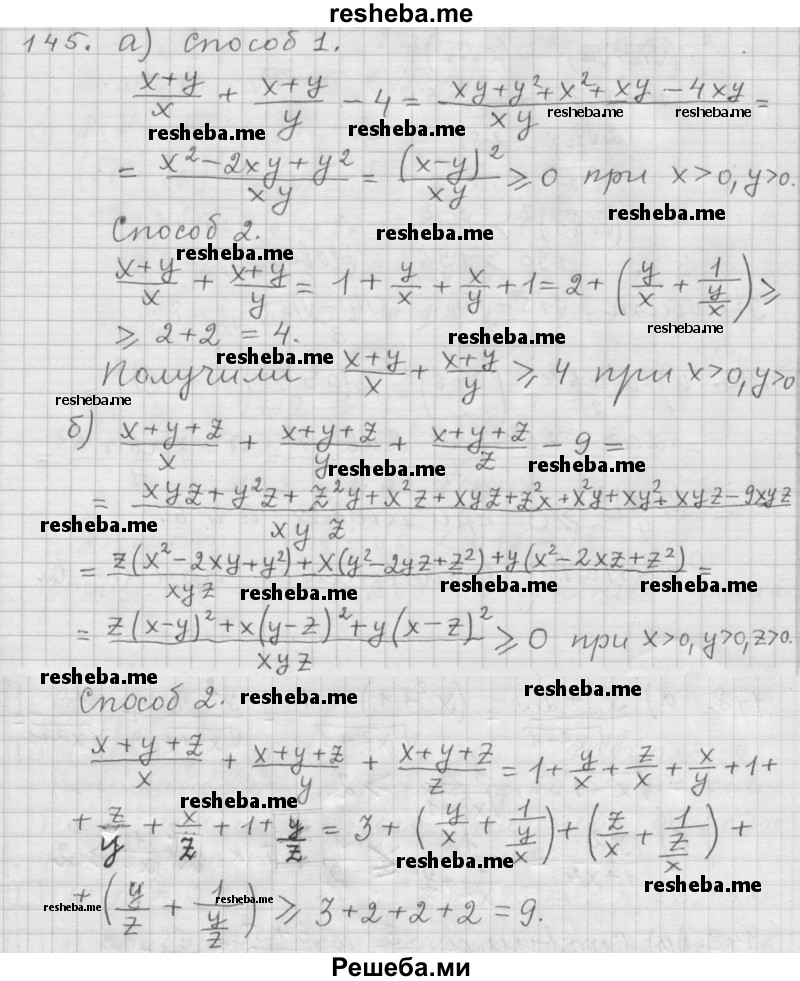 resheba.me
145. а) Способ 1.
(x+y)/x + (x+y)/y − 4 = (xy+y²+x²+xy−4xy)/(xy) =
resheba.me resheba.me resheba.me resheba.me
= (x²−2xy+y²)/(xy) = (x−y)²/(xy) ⩾ 0 при x>0, y>0.
resheba.me
Способ 2.
resheba.me resheba.me
(x+y)/x + (x+y)/y = 1 + y/x + x/y + 1 = 2 + (y/x + 1/(y/x)) ⩾
resheba.me
⩾ 2+2 = 4.
resheba.me resheba.me
Получили (x+y)/x + (x+y)/y ⩾ 4 при x>0, y>0
resheba.me
б) (x+y+z)/x + (x+y+z)/y + (x+y+z)/z − 9 =
resheba.me resheba.me
= (xyz+y²z+z²y+x²z+xyz+z²x+x²y+xy²+xyz−9xyz)/(xyz)
resheba.me
= (z(x²−2xy+y²)+x(y²−2yz+z²)+y(x²−2xz+z²))/(xyz) =
resheba.me resheba.me resheba.me
= (z(x−y)²+x(y−z)²+y(x−z)²)/(xyz) ⩾ 0 при x>0, y>0, z>0.
resheba.me
Способ 2.
resheba.me resheba.me
(x+y+z)/x + (x+y+z)/y + (x+y+z)/z = 1 + y/x + z/x + x/y + 1 +
resheba.me
+ z/y + x/z + 1 + y/z = 3 + (y/x + 1/(y/x)) + (z/x + 1/(z/x)) +
resheba.me resheba.me
+ (y/z + 1/(y/z)) ⩾ 3+2+2+2 = 9.
resheba.me resheba.me
Решеба.ми